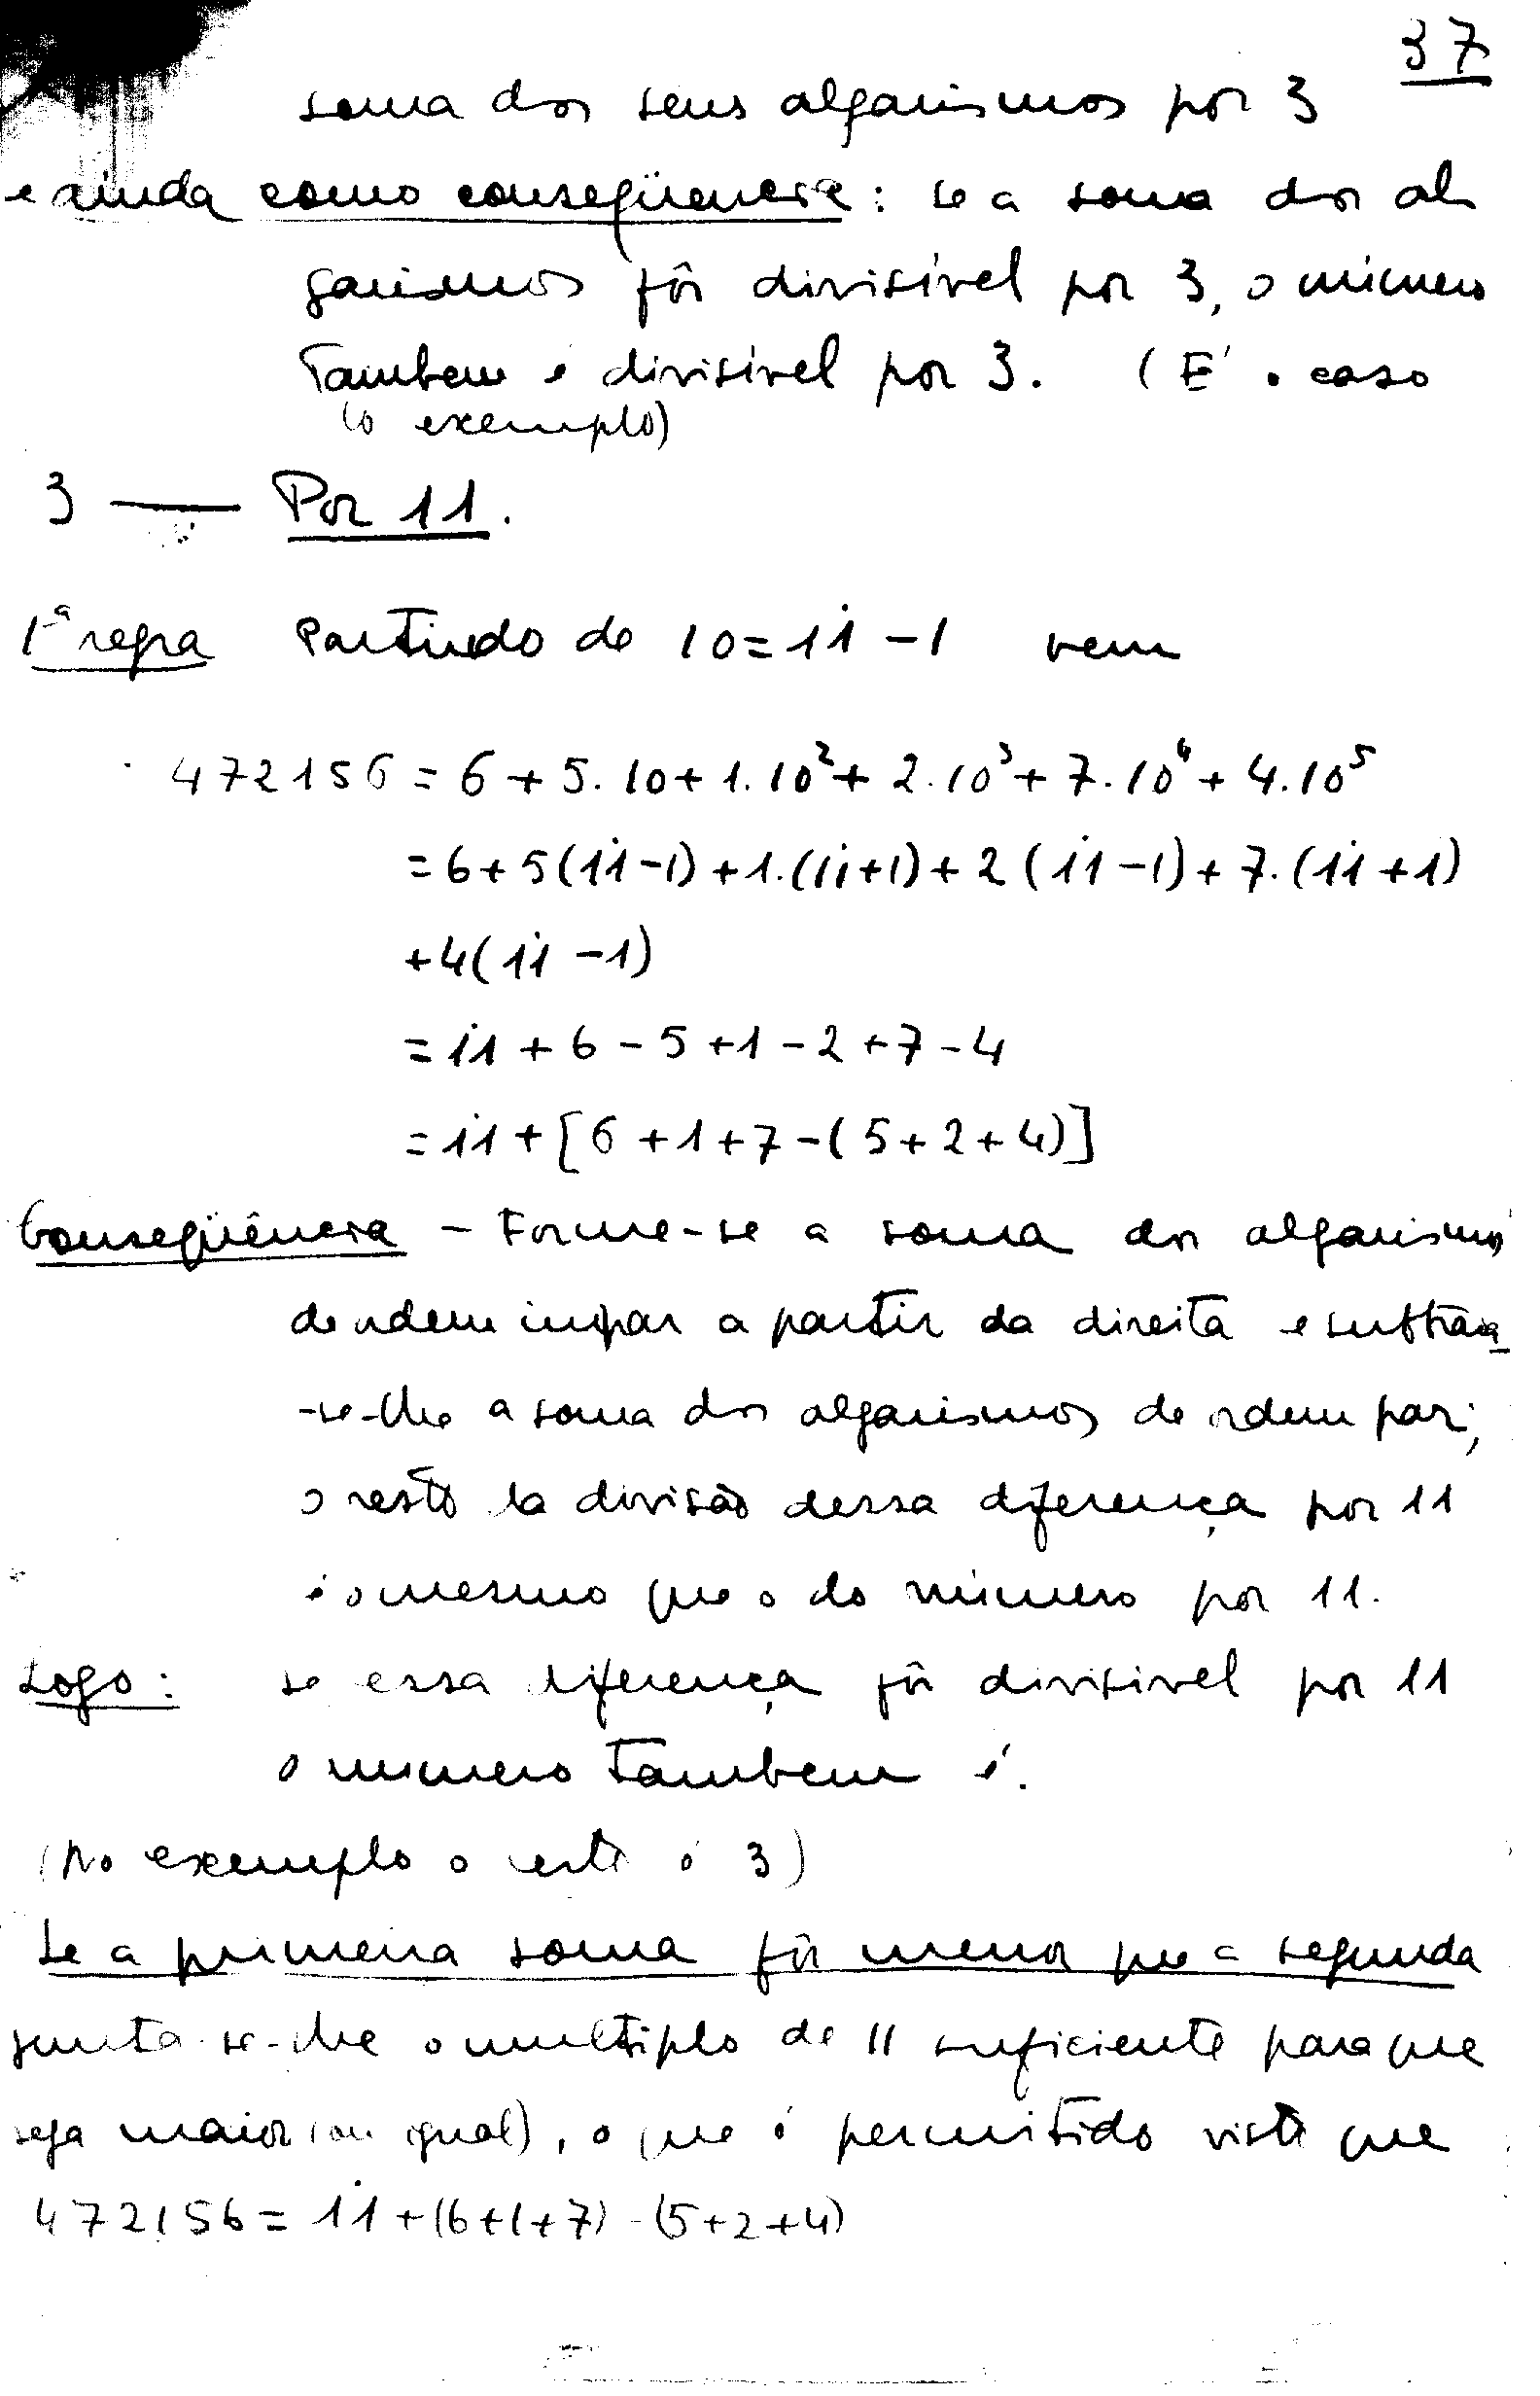 37
soma dos seus algarismos por 3
e ainda como conseqüencia: se a soma dos al
garismos fôr divisível por 3, o número
Tambem é divisível por 3. (E' o caso
(o exemplo)
3 — Por 11.
1ª regra Partindo de 10 = 1̇1 - 1 vem
472156 = 6 + 5.10 + 1.10² + 2.10³ + 7.10⁴ + 4.10⁵
= 6 + 5(1̇1 - 1) + 1.(1̇1 + 1) + 2(1̇1 - 1) + 7.(1̇1 + 1)
+ 4(1̇1 - 1)
= 1̇1 + 6 - 5 + 1 - 2 + 7 - 4
= 1̇1 + [6 + 1 + 7 - (5 + 2 + 4)]
Conseqüência - Forme-se a soma dos algarismos
de ordem impar a partir da direita e subtraia
-se-lhe a soma dos algarismos de ordem par;
o resto da divisão dessa diferença por 11
é o mesmo que o do número por 11.
Logo: se essa diferença fôr divisivel por 11
o numero Tambem é.
(No exemplo o resto é 3)
Se a primeira soma fôr menor que a segunda
junta-se-lhe o multiplo de 11 suficiente para que
seja maior (ou igual), o que é permitido visto que
472156 = 1̇1 + (6+1+7) - (5+2+4)